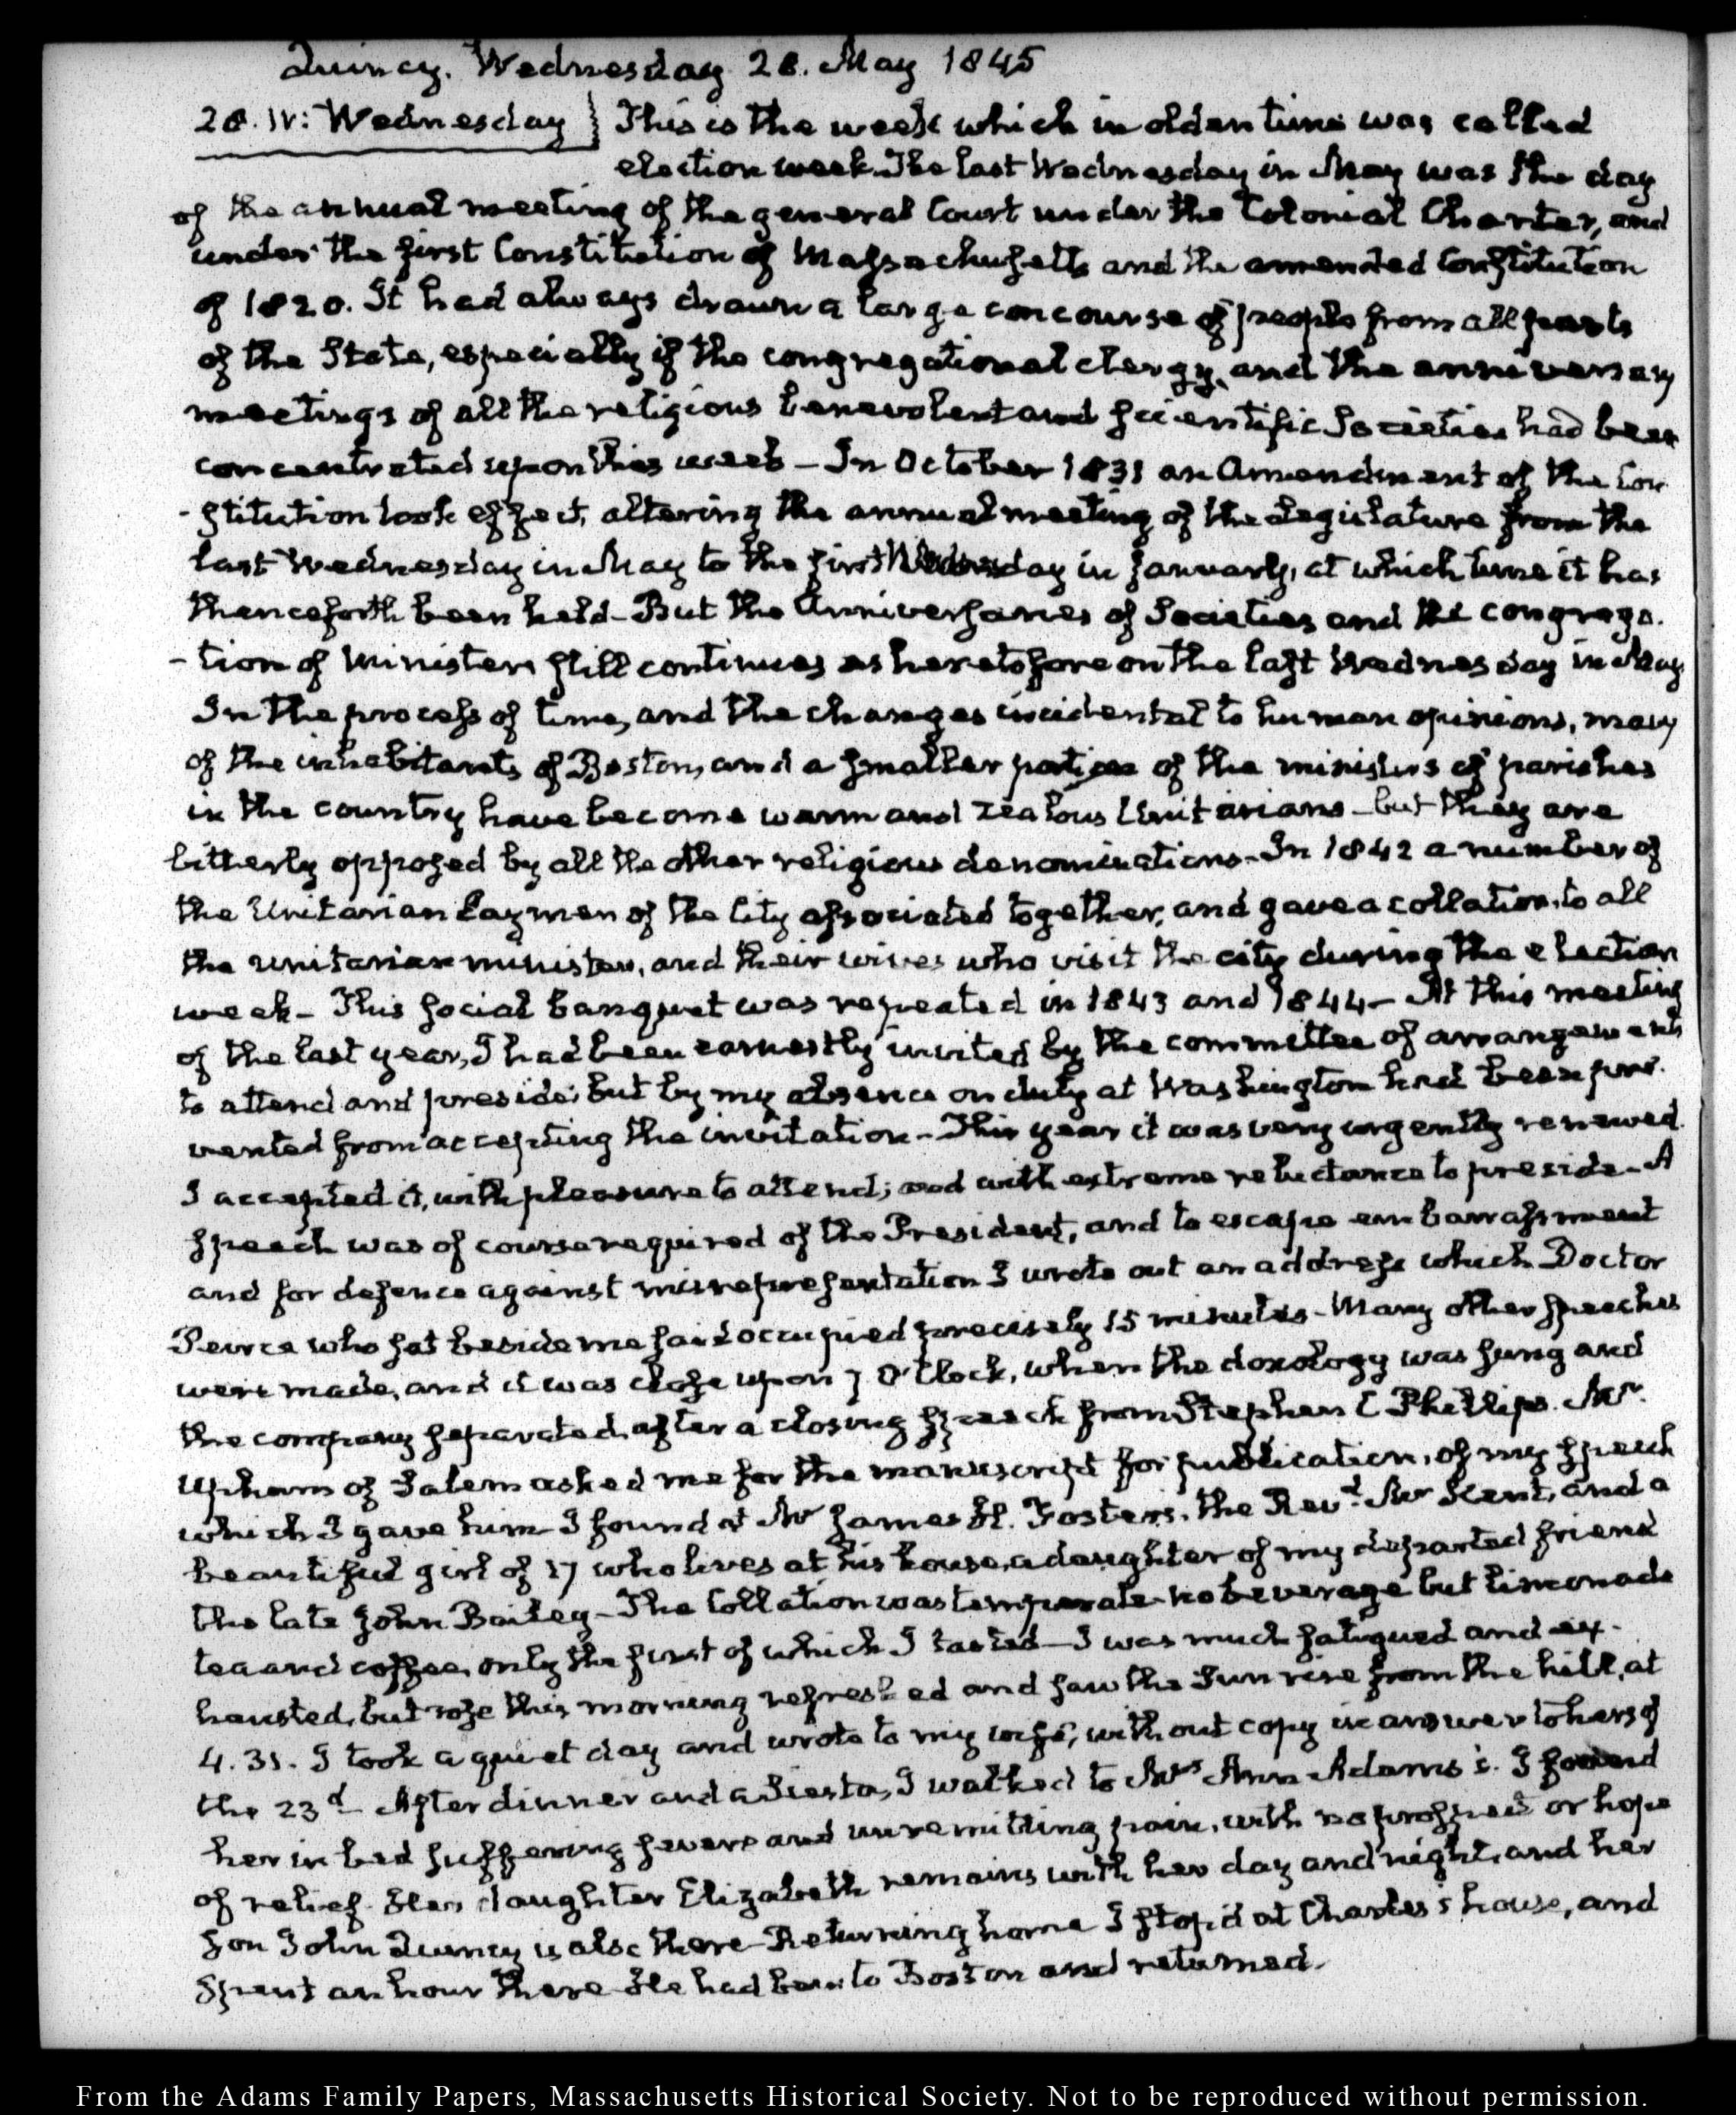 Quincy. Wednesday 28. May 1845
28. IV: Wednesday } This is the week which in olden time was called
election week. The last Wednesday in May was the day
of the annual meeting of the general Court under the Colonial Charter, and
under the first Constitution of Massachusetts and the amended Constitution
of 1820. It had always drawn a large concourse of people from all parts
of the State, especially of the congregational clergy, and the anniversary
meetings of all the religious benevolent and scientific Societies had been
concentrated upon this week – In October 1831 an Amendment of the Con
- stitution took effect, altering the annual meeting of the Legislature from the
last Wednesday in May to the first Wednesday in January, at which time it has
thenceforth been held – But the Anniversaries of Societies and the congrega.
- tion of Ministers still continues as heretofore on the last Wednesday in May
In the process of time, and the changes incidental to human opinions, many
of the inhabitants of Boston, and a smaller portion of the ministers of parishes
in the country have become warm and zealous Unitarians – but they are
bitterly opposed by all the other religious denominations – In 1842 a number of
the Unitarian Laymen of the City associated together, and gave a collation, to all
the unitarian ministers, and their wives who visit the city during the election
week – This social banquet was repeated in 1843 and 1844 – At this meeting
of the last year, I had been earnestly invited by the committee of arrangements
to attend and preside; but by my absence on duty at Washington had been pre.
vented from accepting the invitation – This year it was very urgently renewed.
I accepted it, with pleasure to attend; and with extreme reluctance to preside – A
speech was of course required of the President, and to escape embarrassment
and for defence against misrepresentation I wrote out an address which Doctor
Peirce who sat beside me said occupied precisely 15 minutes – Many other speeches
were made, and it was close upon 7 O'Clock, when the doxology was sung and
the company separated, after a closing speech from Stephen C Phillips. Mr.
Upham of Salem asked me for the manuscript for publication, of my speech
which I gave him – I found at Mr James H. Foster's, the Revd. Mr Kent, and a
beautiful girl of 17 who lives at his house, a daughter of my departed friend
the late John Bailey – The Collation was temperate – no beverage but limonade
tea and coffee, only the first of which I tasted – I was much fatigued and ex-
hausted, but rose this morning refreshed and saw the Sun rise from the hill, at
4.31. I took a quiet day and wrote to my wife, without copy in answer to hers of
the 23d – After dinner and a Siesta, I walked to Mrs Ann Adams's. I found
her in bed suffering severe and unremitting pain, with no prospect or hope
of relief. Her daughter Elizabeth remains with her day and night, and her
son John Quincy is also there – Returning home I stop'd at Charles's house, and
spent an hour there – He had been to Boston and returned.
From the Adams Family Papers, Massachusetts Historical Society. Not to be reproduced without permission.